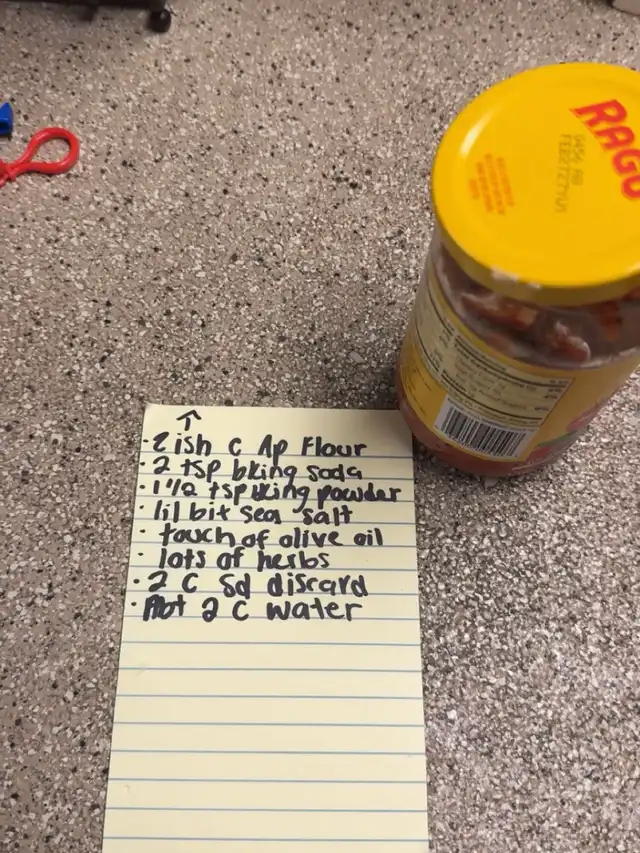 RAGÚ
↑
·2 ish c Ap Flour
·2 tsp bking soda
·1 1/2 tsp bking powder
·lil bit sea salt
·touch of olive oil
·lots of herbs
·2 c Sd discard
·Abt 2 c water